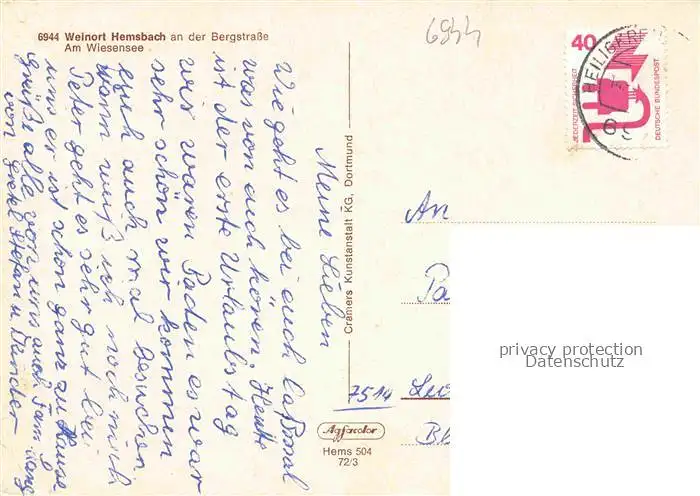 6944 Weinort Hemsbach an der Bergstraße
Am Wiesensee
6944
40
JEDERZEIT SICHERHEIT
DEUTSCHE BUNDESPOST
HEILIGKRE
69
Meine Lieben
Wie geht es bei euch laßt mal
was von euch hören, Heute
ist der erste Urlaubstag
wir waren Baden es war
sehr schön wir kommen
euch auch mal besuchen
wann weiß ich noch nich
Peter geht es sehr gut bei
uns er ist schon ganz zu Hause
Grüße alle von uns auch Fam. Lang
von Gretel Stefan u. Kinder
Cramers Kunstanstalt KG, Dortmund
An
7514
Agfacolor
Hems 504
72/3
privacy protection
Datenschutz